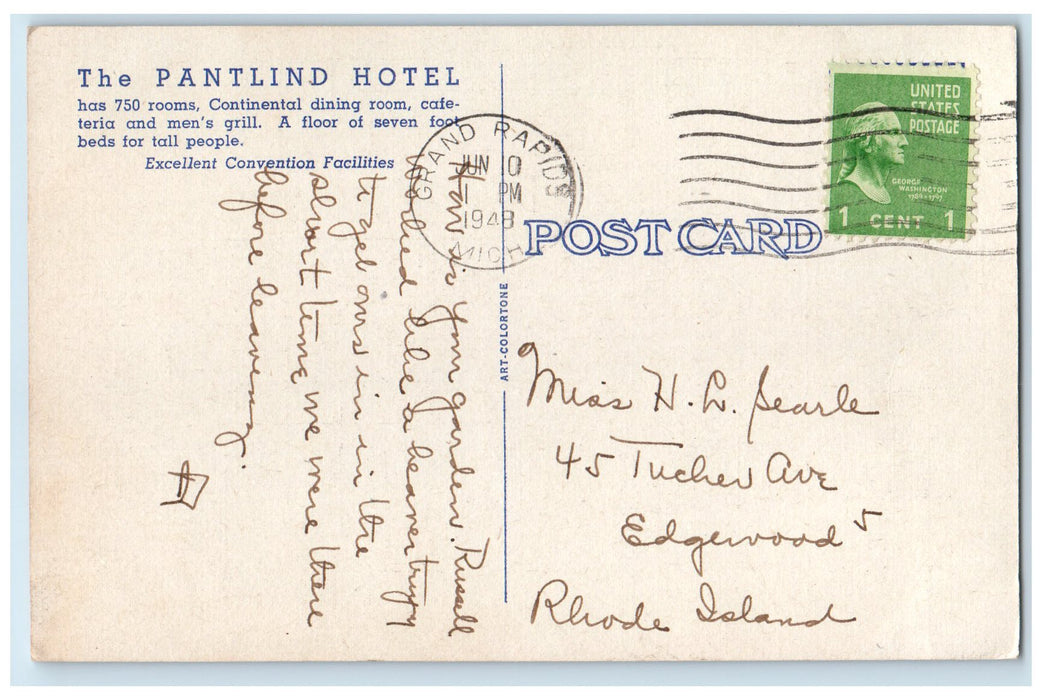 The PANTLIND HOTEL
has 750 rooms, Continental dining room, cafe-
teria and men's grill. A floor of seven foot
beds for tall people.
Excellent Convention Facilities
GRAND RAPIDS
JUN 10
1 PM
1948
MICH
UNITED
STATES
POSTAGE
GEORGE
WASHINGTON
1789-1797
1 CENT 1
POST CARD
ART-COLORTONE
How is your garden. Russell
worked like a beaver trying
to get ours in in the
short time we were there
before leaving.
Miss H. L. Searle
45 Tucker Ave
Edgewood 5
Rhode Island